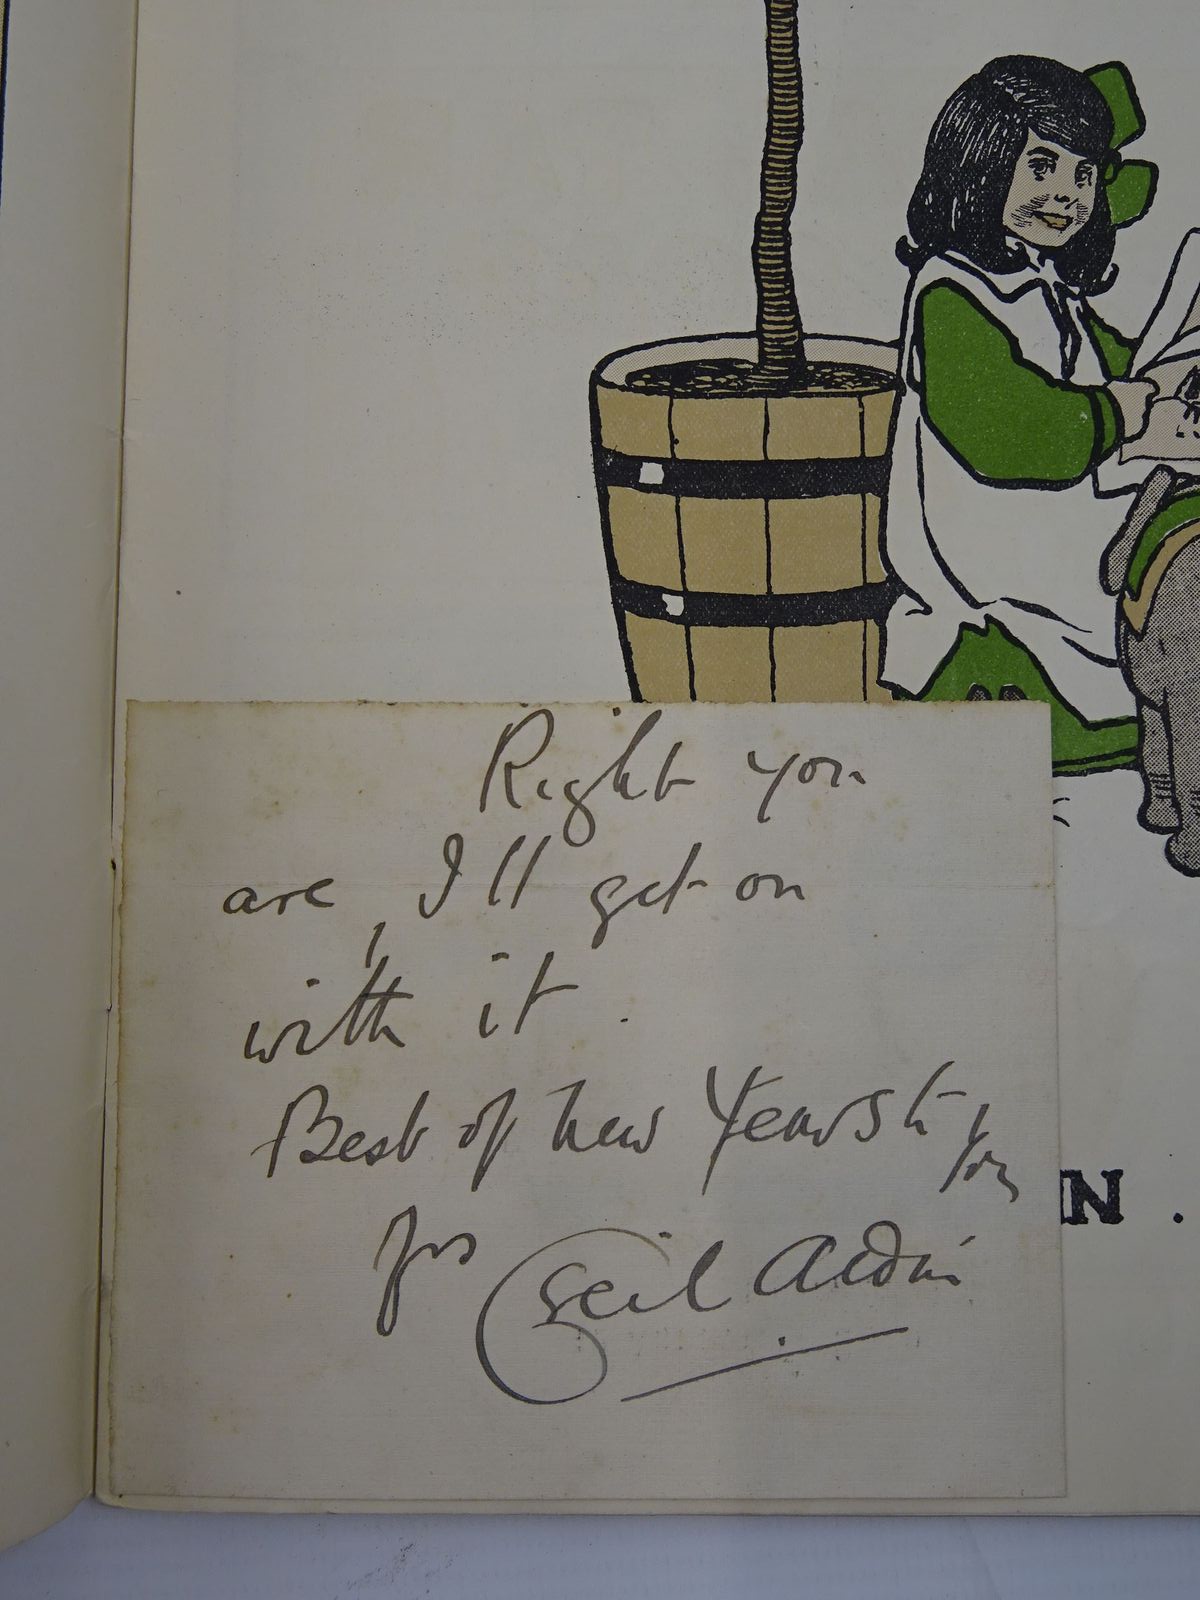 Right you
are, I'll get on
with it.
Best of New Years to you
Yrs Cecil Aldin
N.